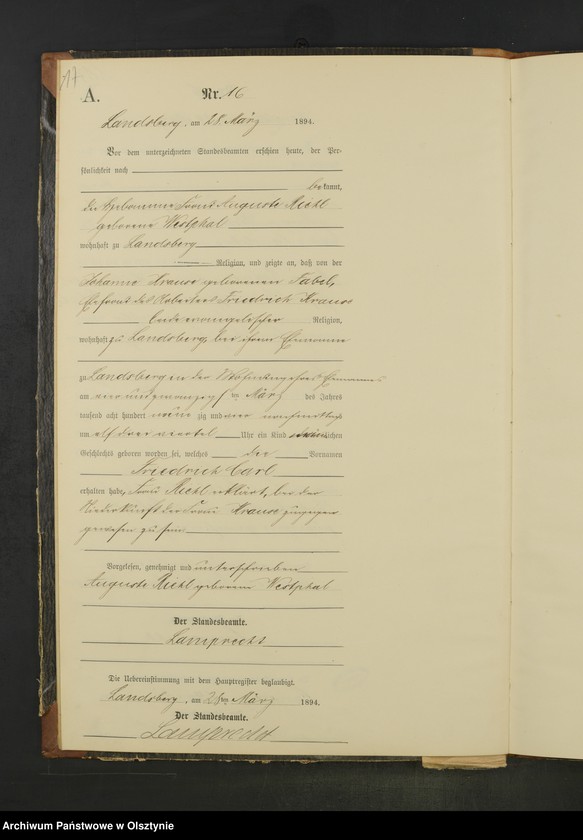 317
A.
Nr. 16
Landsberg, am 28. März 1894.
Vor dem unterzeichneten Standesbeamten erschien heute, der Per-
sönlichkeit nach
bekannt,
die Hebamme Frau Auguste Riehl
geborene Westphal
wohnhaft zu Landsberg
Religion, und zeigte an, daß von der
Johanne Krause geborenen Nabel,
Ehefrau des Arbeiters Friedrich Krause
beide evangelischer Religion,
wohnhaft zu Landsberg, bei ihrem Ehemanne
zu Landsberg in der Wohnung ihres Ehemannes
am vier und zwanzigsten März des Jahres
tausend acht hundert neunzig und vier nachmittags
um elf drei viertel Uhr ein Kind männlichen
Geschlechts geboren worden sei, welches die Vornamen
Friedrich Carl
erhalten habe, Frau Riehl erklärt, bei der
Niederkunft der Frau Krause zugegen
gewesen zu sein.
Vorgelesen, genehmigt und unterschrieben
Auguste Riehl geborene Westphal
Der Standesbeamte.
Lamprecht
Die Uebereinstimmung mit dem Hauptregister beglaubigt.
Landsberg, am 28ten März 1894.
Der Standesbeamte.
Lamprecht
Archiwum Państwowe w Olsztynie